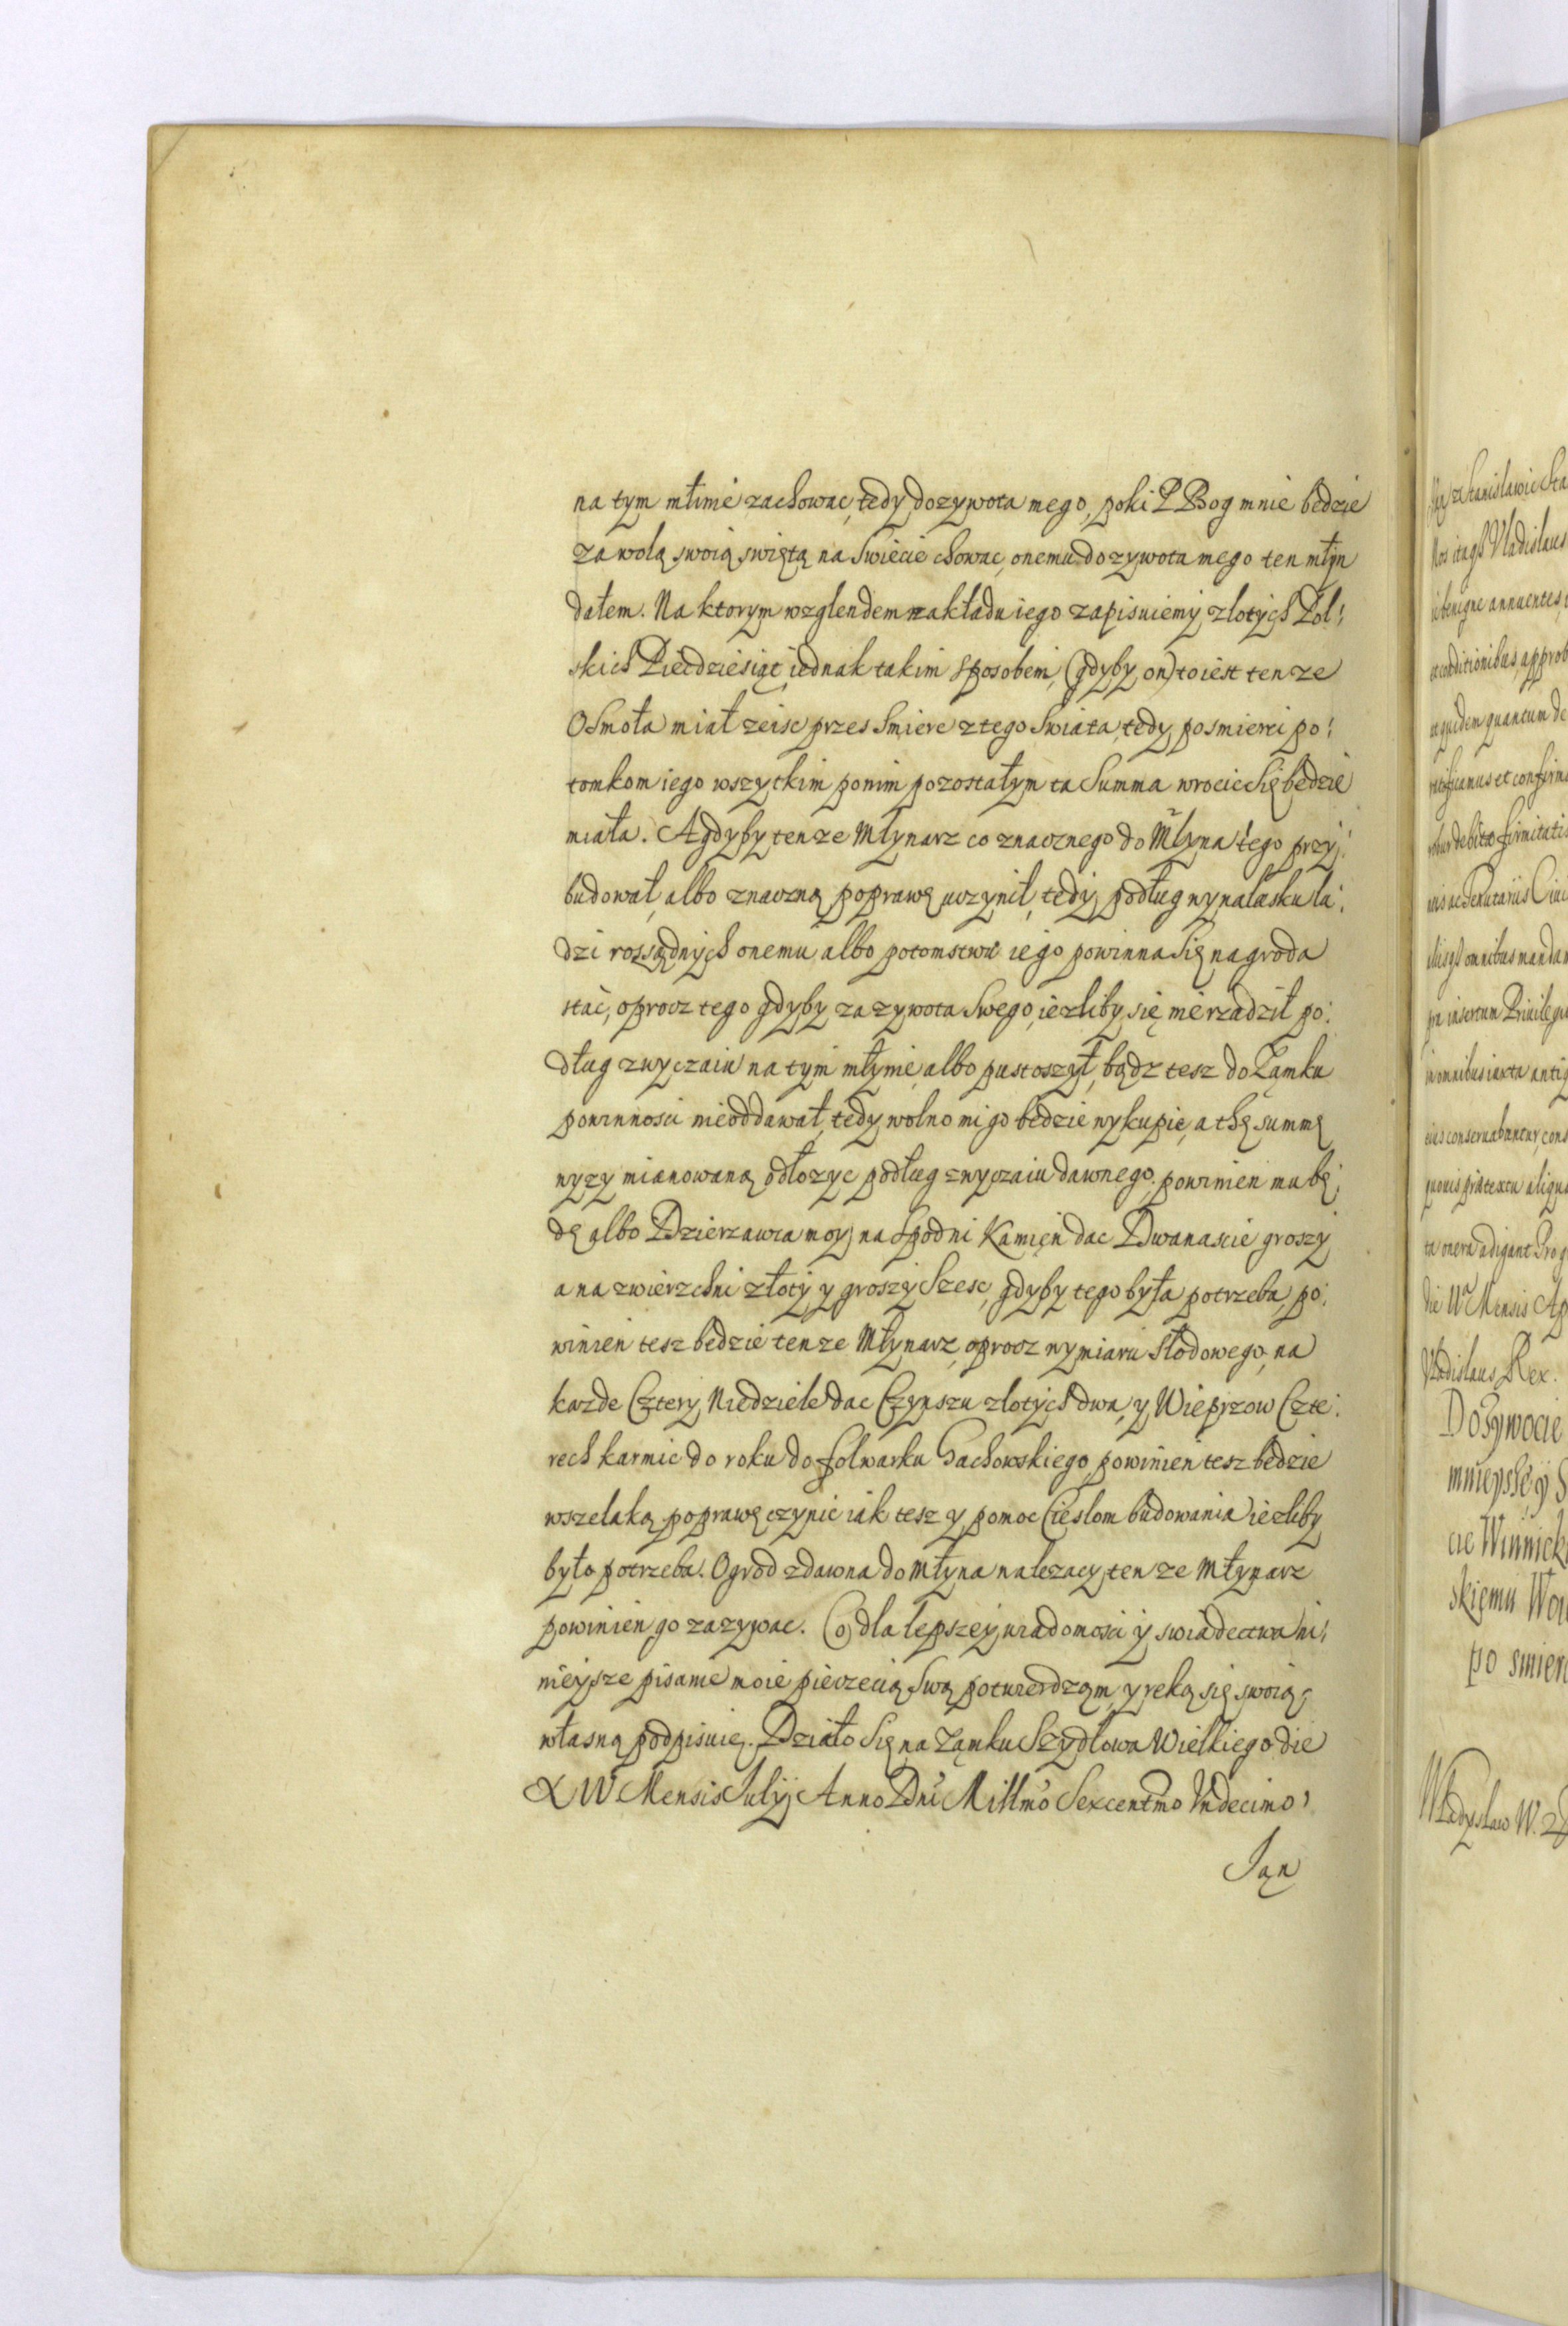 na tym młinie zachowac, tedy dozywota mego, poki P Bog mnie bedzie
za wolą swoią swiętą na Swiecie chowac, onemu dozywota mego ten młyn
dałem. Na ktorym wzglendem nakładu iego zapisuiemy złotych Pol:
skich Piecdziesiąt, iednak takim sposobem, (gdyby on) to iest tenze
Osmoła miał zeisc przes Smierc z tego Swiata, tedy po smierci po:
tomkom iego wszytkim ponim pozostałym ta Summa wrocic Się bedzie
miała. A gdyby tenze Młynarz co znacznego do Młyna tego przy:
budował, albo znaczną poprawę uczynił, tedy podług wynalasku lu:
dzi rossądnych onemu albo potomstwu iego powinna Się nagroda
stac, oprocz tego gdyby za zywota Swego, iezliby się nierządził po:
dług zwyczaiu na tym młynie, albo pustoszył, bądz tesz do Zamku
powinnosci nieoddawał, tedy wolno mi go bedzie wykupic, a thę summę
wyzy mianowaną odłozyc podług zwyczaiu dawnego. powinien mu bę:
dę albo Dzierzawca moy na Spodni Kamięn dac Dwanascie groszy
a na zwierzchni złoty y groszy Szesc, gdyby tego była potrzeba, po:
winien tesz bedzie tenze Młynarz, oprocz wymiaru Słodowego, na
kazde Cztery Niedziele dac Czynszu złotych dwa, y Wieprzow Czte:
rech karmic do roku do folwarku Gachowskiego, powinien tesz bedzie
wszelaką poprawę czynic iak tesz y pomoc Cieslom budowania iezliby
było potrzeba. Ogrod zdawna do Młyna nalezacy, tenze Młynarz
powinien go zazywac. Co dla lepszey wiadomosci y swiadectwa ni:
nieysze pisanie moie pieczecią Swą potwierdzam, y reką się swoią
własną podpisuię. Działo Się na Zamku Szydłowa Wielkiego die
XIV Mensis Iulij Anno Dni Millmo Sexcentmo Vndecimo,
Jan
Nos itaqz Vladislaus
benigne annuentes,
conditionibus, approb
quidem quantum de
ratificamus et confirm
debitae firmitatis
omnibus mandam
insertum Priuilegiu
in omnibus iuxta antiq
conseruabuntur, cons
praetextu aliquo
onera adigant Prog
Mensis Ap
Vladislaus Rex.
Dozywocie
mnieyszey S
cie Winnick
skięmu Wo
po smierc
Władysław W.